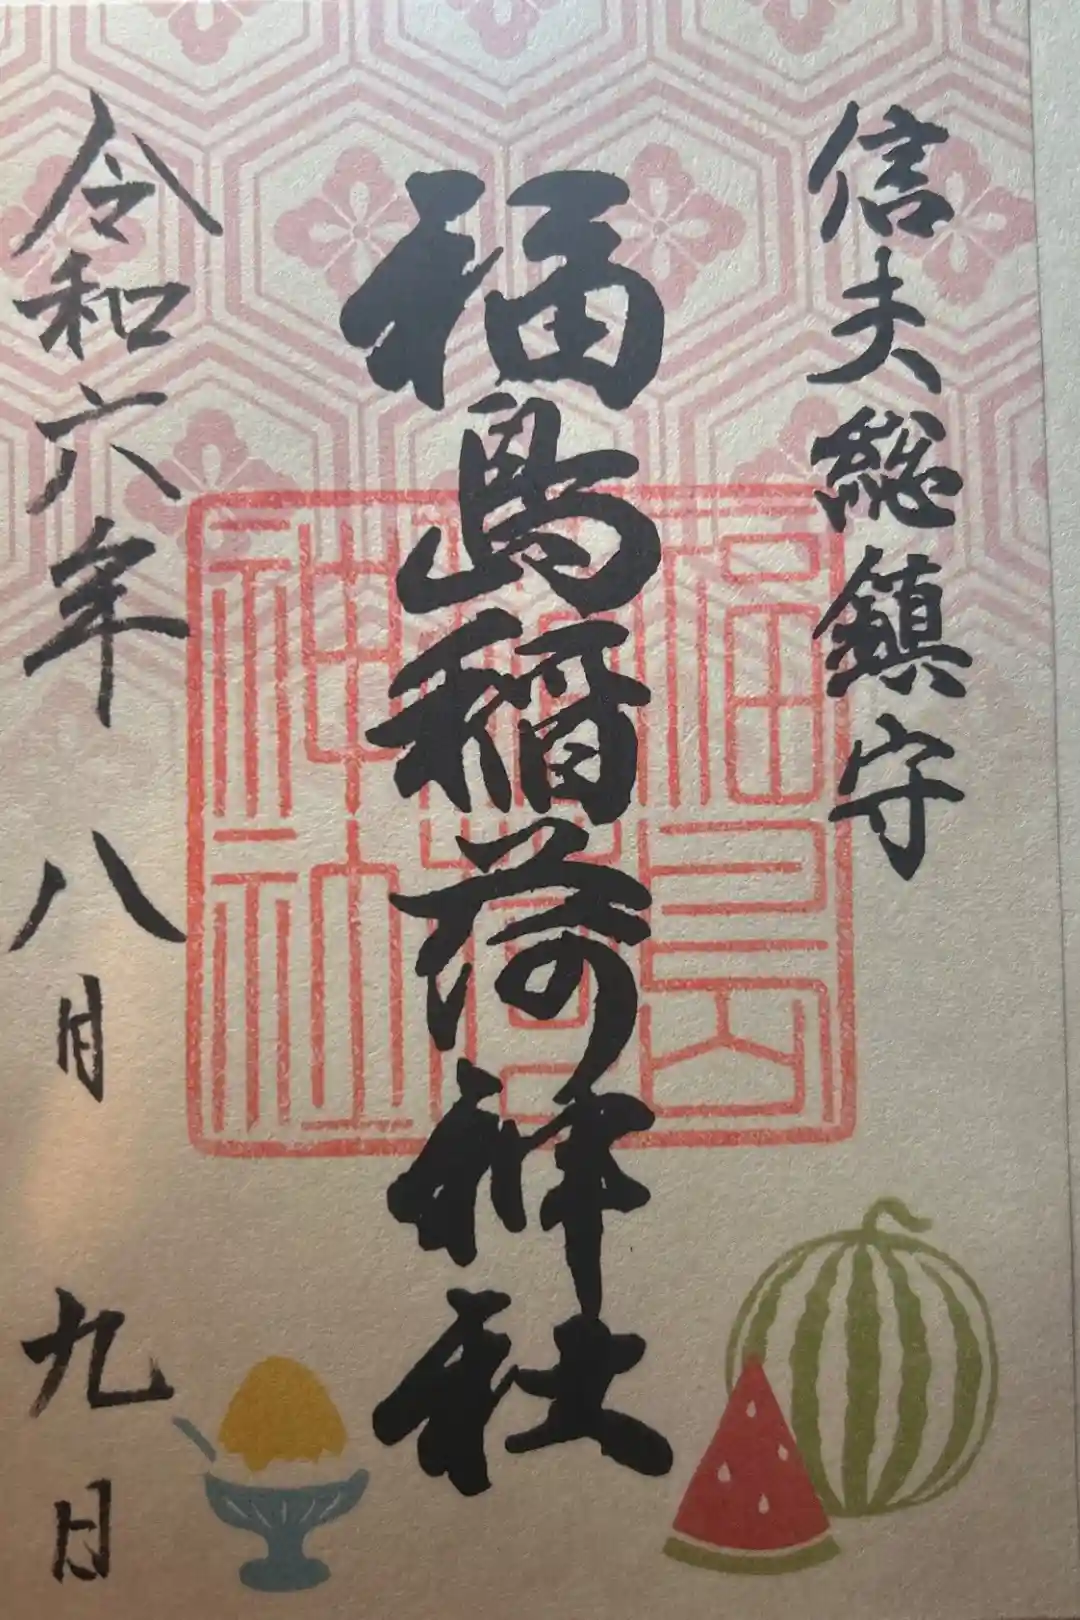 信夫総鎮守
福島稲荷神社
福島稲荷神社
令和六年八月九日